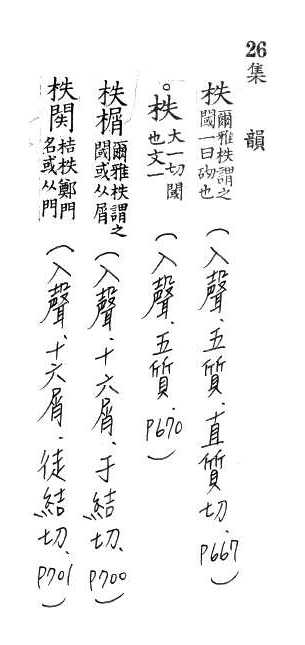 26集 韻
柣 爾雅柣謂之閾一曰砌也 (入聲、五質、直質切、P667)
。柣 大一切閾也文一 (入聲、五質、P670)
柣榍 爾雅柣謂之閾或从屑 (入聲、十六屑、千結切、P700)
柣関 桔柣鄭門名或从門 (入聲、十六屑、徒結切、P701)